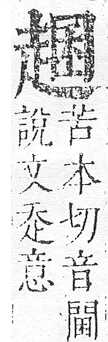 苦本切音閫
說文走意